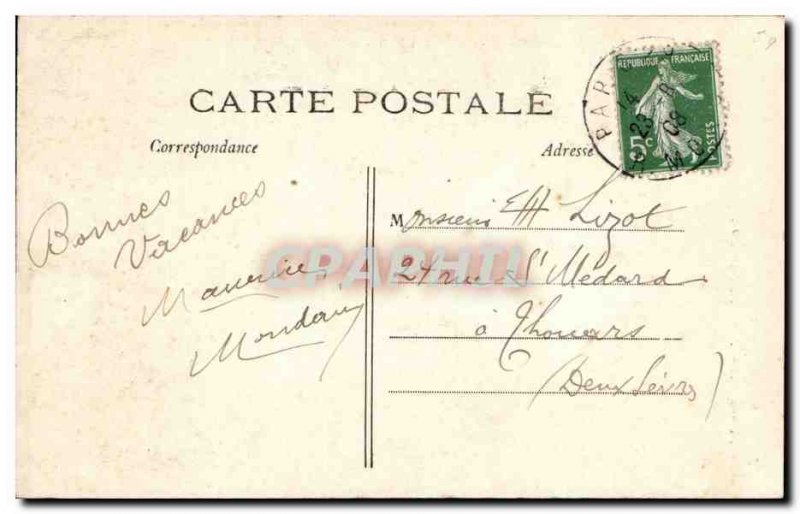 CARTE POSTALE
Correspondance
Adresse
RÉPUBLIQUE FRANÇAISE
5c
POSTES
PAR
14
23
08
Bonnes
Vacances
Maurice
Monsieur Lizot
27 rue St Médard
à Thouars
(Deux Sèvres)
CPAPHIL